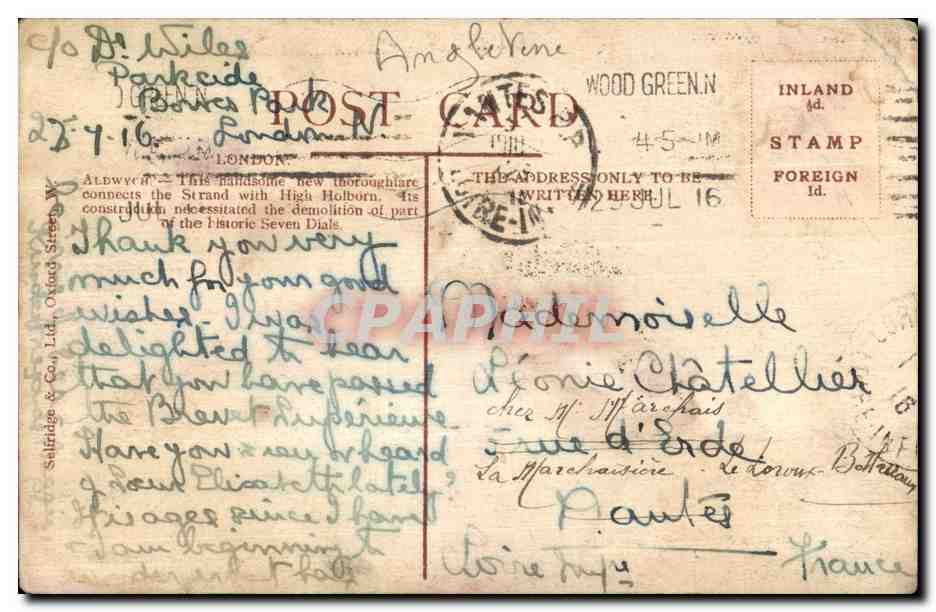 c/o Dr Wiles
Parkside
Bowes Park
London N.
25-7-16
Angleterre
POST CARD
LONDON.
ALDWYCH.—This handsome new thoroughfare
connects the Strand with High Holborn. Its
construction necessitated the demolition of part
of the historic Seven Dials.
THE ADDRESS ONLY TO BE
WRITTEN HERE
WOOD GREEN.N
4 5-M
25 JUL 16
INLAND
½d.
STAMP
FOREIGN
1d.
NANTES
Selfridge & Co., Ltd., Oxford Street, W.
Thank you very
much for your good
wishes. I was
delighted to hear
that you have passed
the Brevet Supérieure
Have you seen or heard
of Soeur Elisabeth lately?
It is ages since I have
I am beginning to
Mademoiselle
Léonie Châtellier
chez Mr Marchais
5 rue d'Erdre
La Marchaisière - Le Loroux-Bottereau
Nantes
Loire Infre
France
CPAPHIL